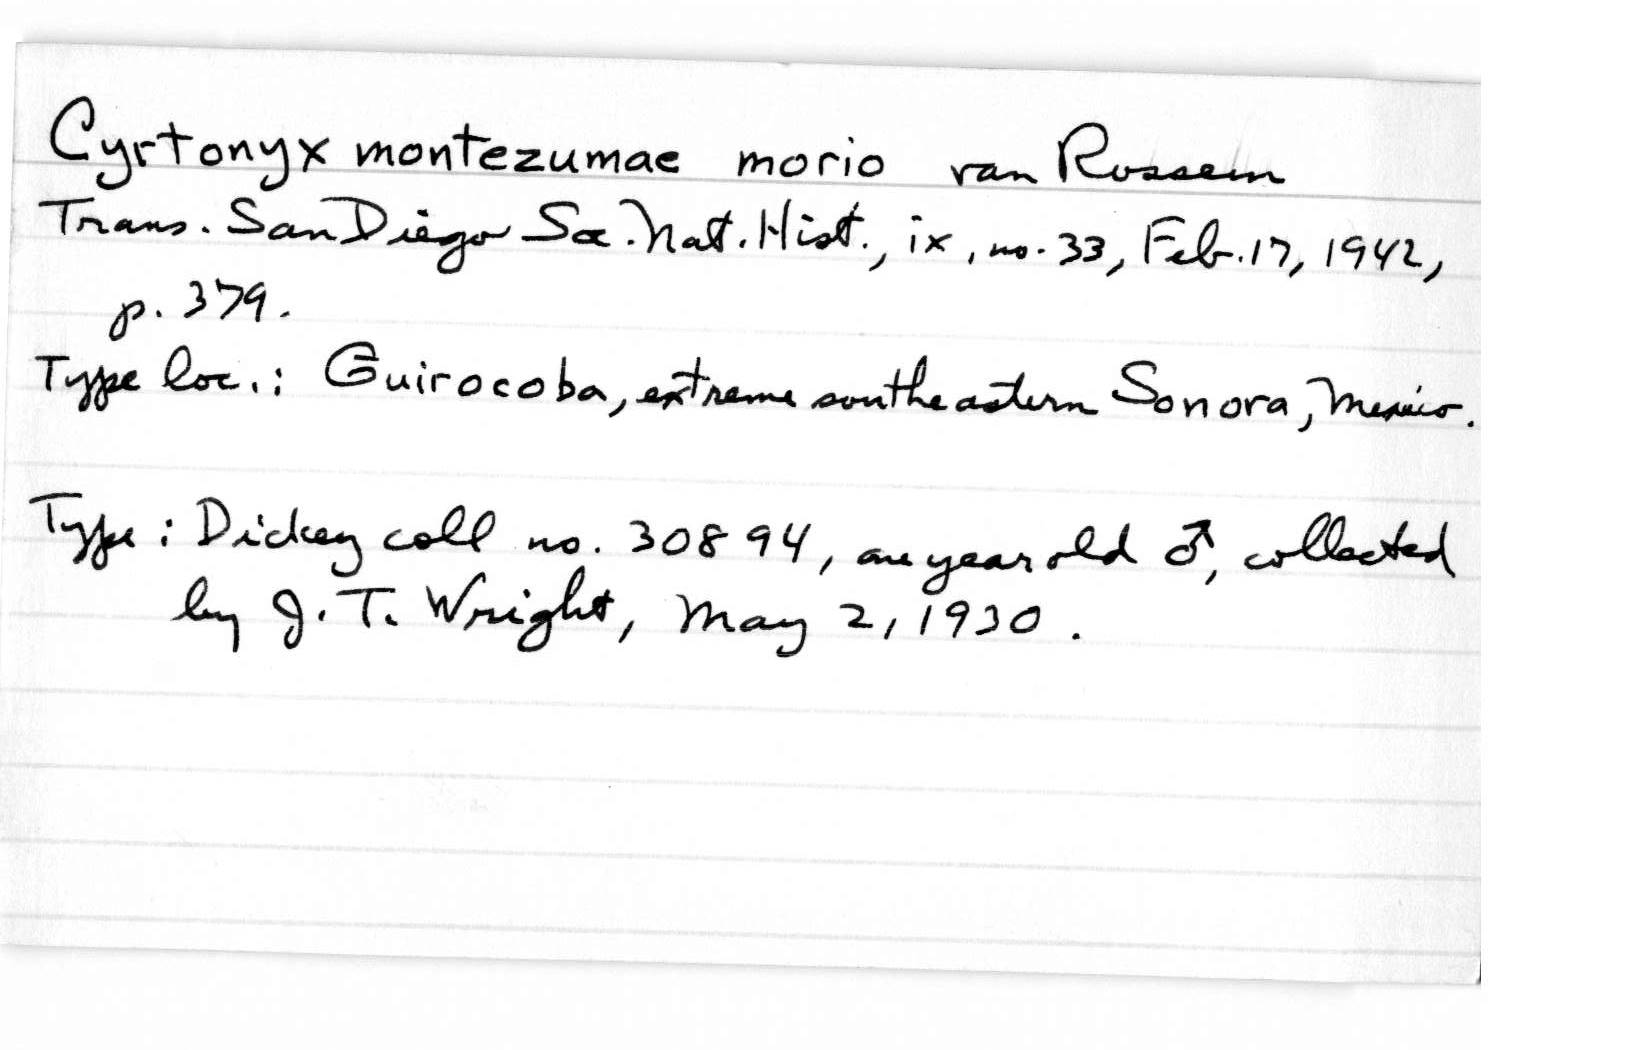 Cyrtonyx montezumae morio van Rossem
Trans. San Diego Soc. Nat. Hist., ix, no. 33, Feb. 17, 1942,
p. 379.
Type loc.: Guirocoba, extreme southeastern Sonora, Mexico.
Type: Dickey coll no. 30894, one year old ♂, collected
by J. T. Wright, May 2, 1930.